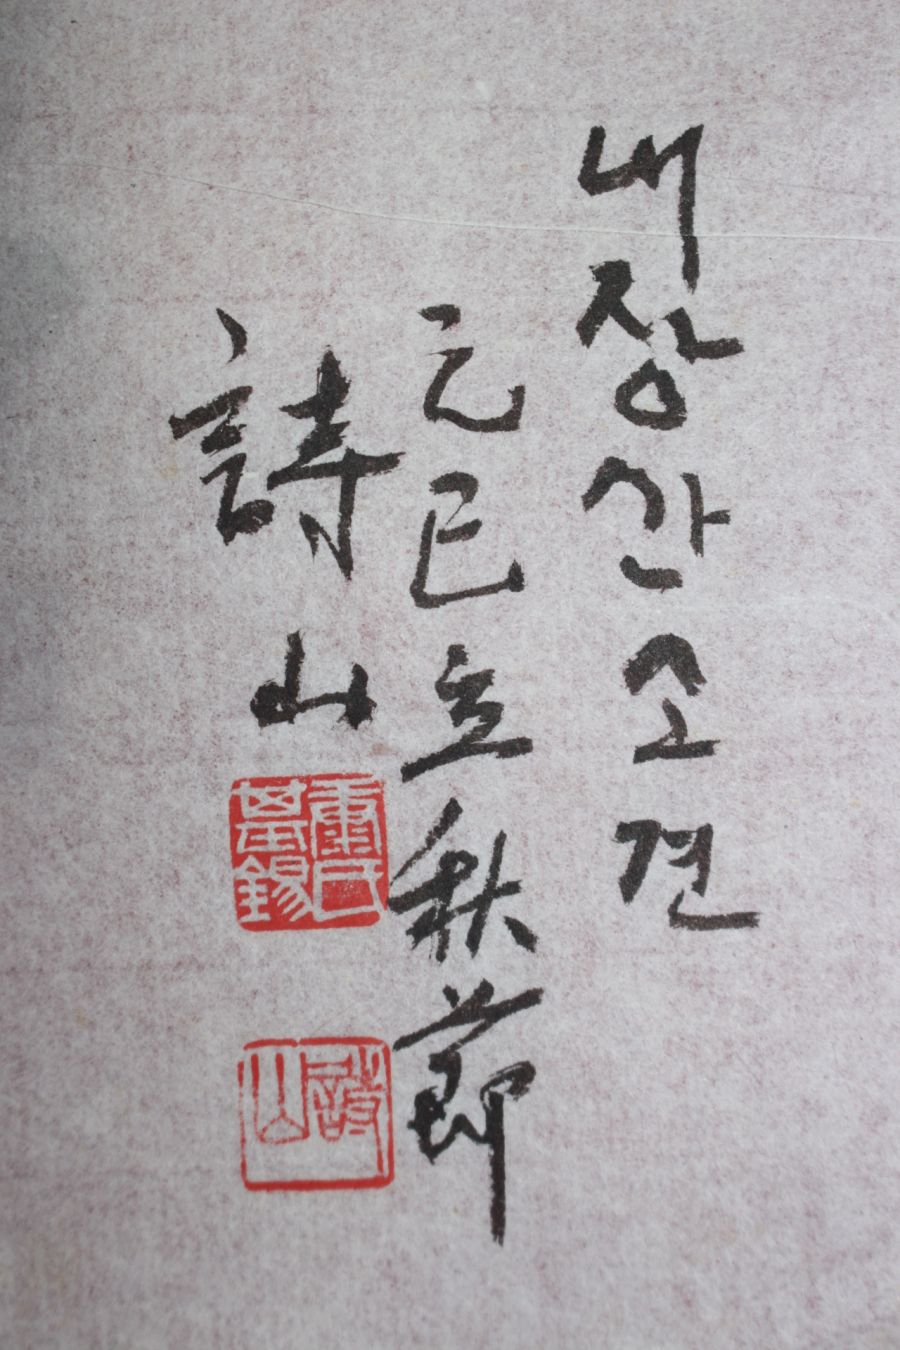 내장산소견
己巳立秋節
詩山
詩山